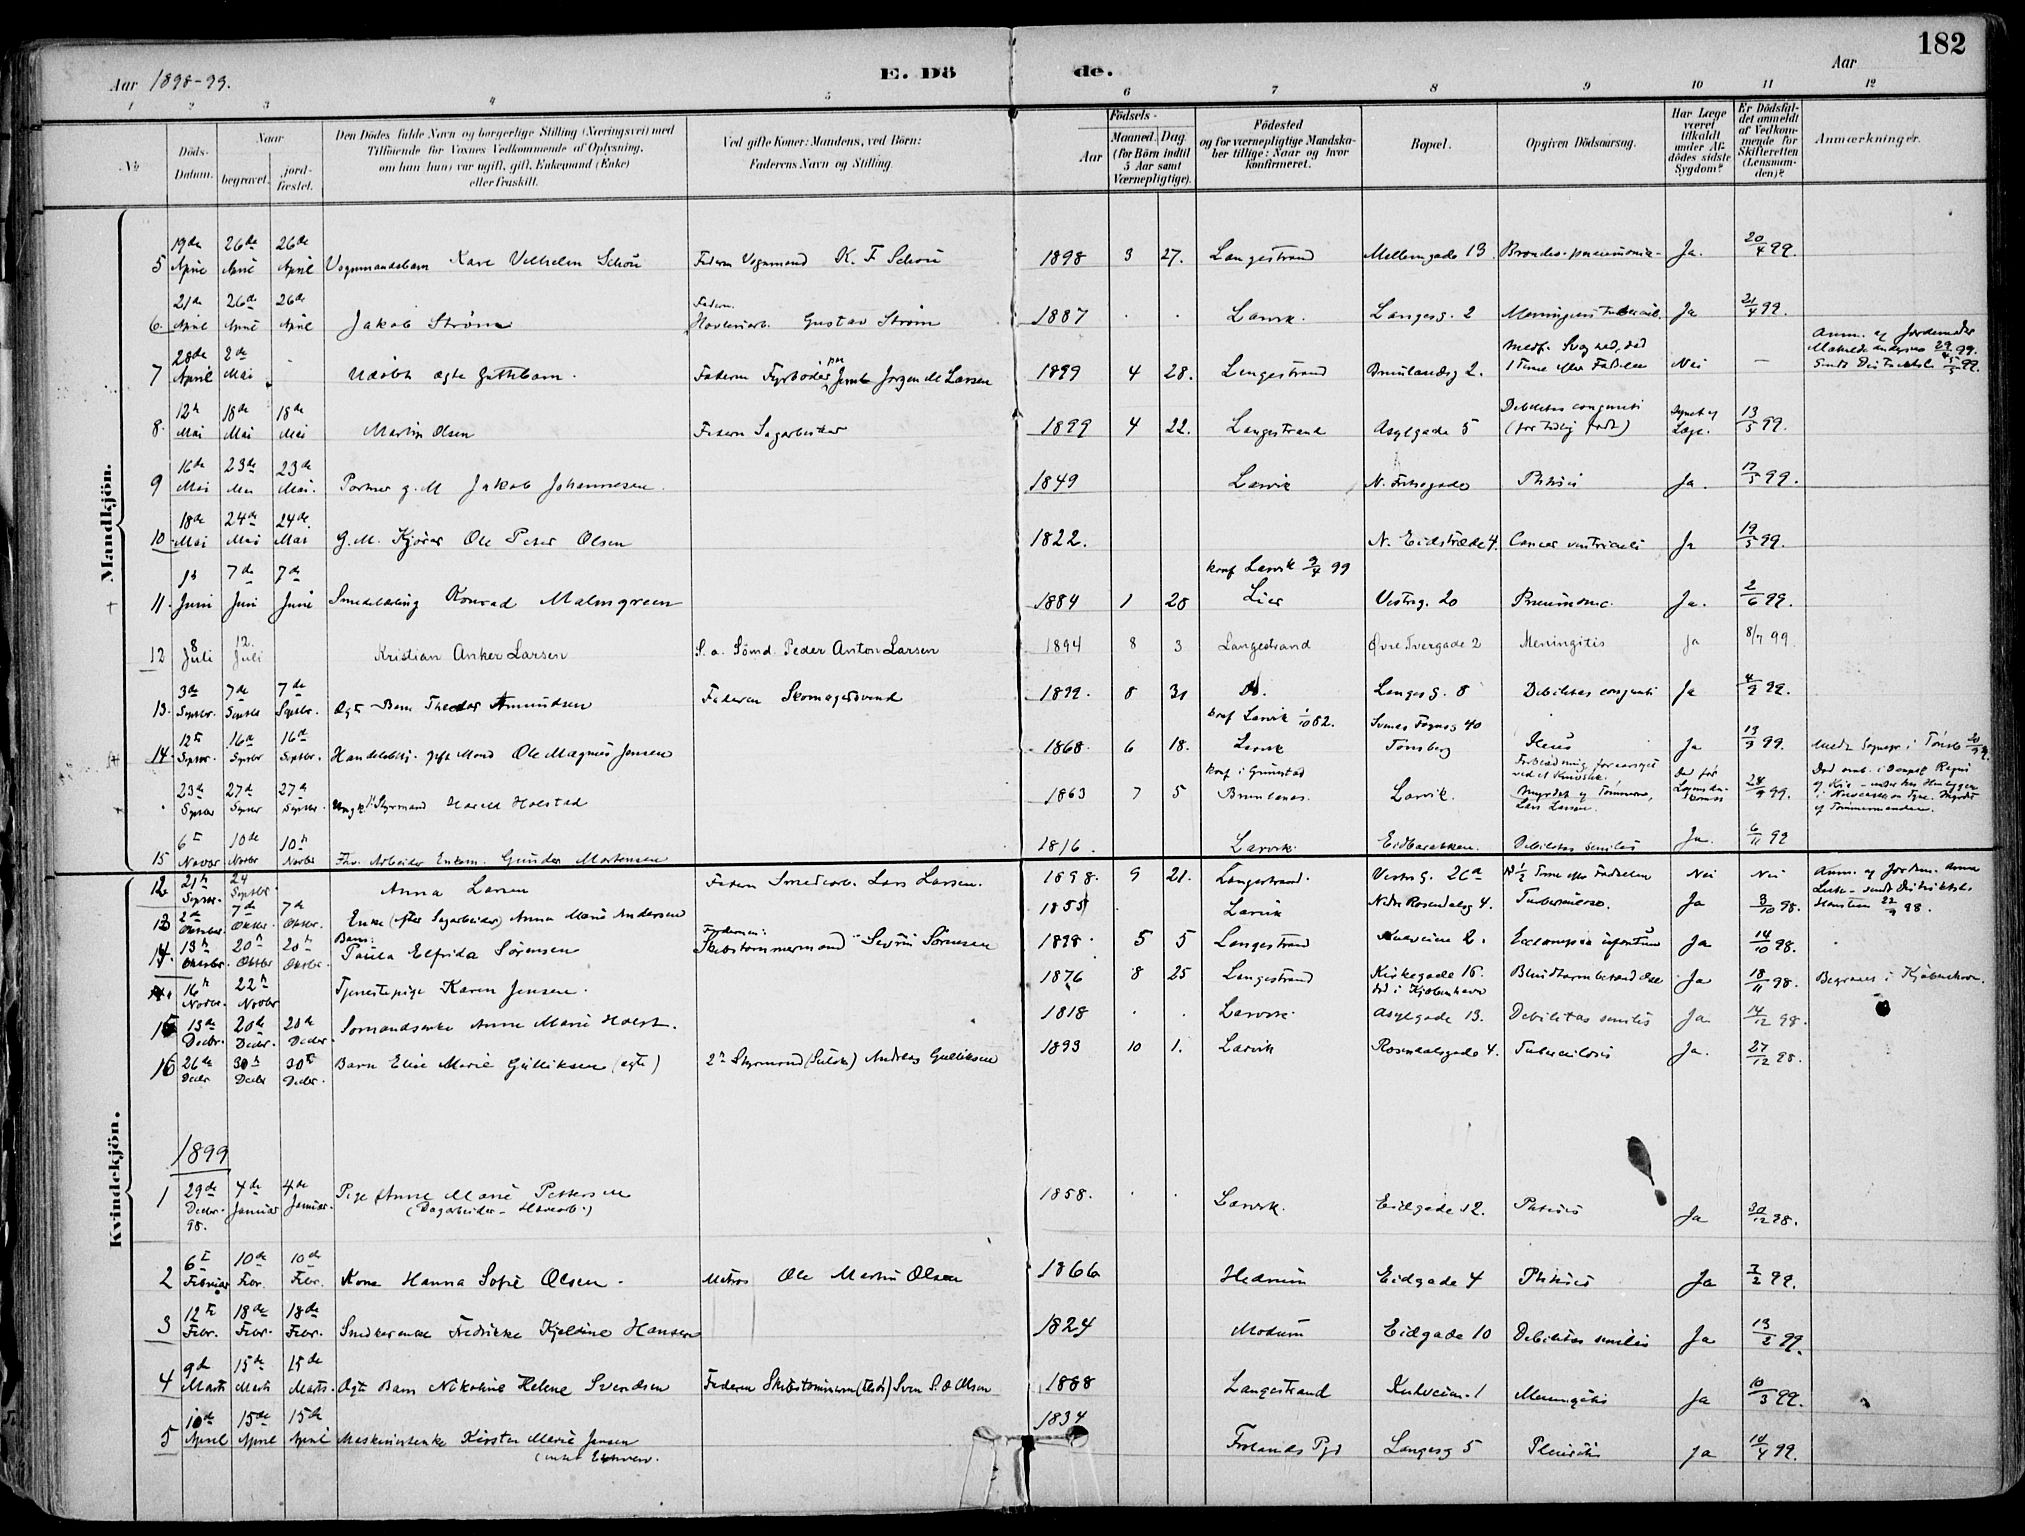 182
Aar 1898-99.
E. Dö de.
Aar
1 2 3 4 5 6 7 8 9 10 11 12
No
Döds-Datum.
Naar
begravet.
jord-fæstet.
Den Dödes fulde Navn og borgerlige Stilling (Næringsvei) med
Tilföiende for Voxnes Vedkommende af Oplysning,
om han (hun) var ugift, gift, Enkemand (Enke)
eller fraskilt.
Ved gifte Koner: Mandens, ved Börn:
Faderens Navn og Stilling.
Födsels-
Aar
Maaned. Dag
(for Börn indtil
5 Aar samt
Værnepligtige).
Födested
og for værnepligtige Mandska-
ber tillige: Naar og hvor
konfirmeret.
Bopæl.
Opgiven Dödsaarsag.
Har Læge
været
tilkaldt
under Af-
dödes sidste
Sygdom?
Er Dödsfal-
det anmeldt
af Vedkom-
mende for
Skifteretten
(Lensman-
den)?
Anmærkninger.
Mandkjön.
5 19de April 26de April 26de April Vognmandsbarn Karl Vilhelm Schou Faderen Vognmand K. F. Schou 1898 3 27. Langestrand Mellemgade 13. Broncho-pneumonie Ja. 20/4 99.
6. 21de April 26de April 26de April Jakob Strøm Faderen Gustav Strøm 1887 . . Larvik. Langesg. 2 Meningitis tubercul. Ja 21/4 99.
7 28de April 2de Mai . Udøbt ægte Guttebarn. Faderen Fyrbøder Jørgen M Larsen 1899 4 28. Langestrand 2. 1 Time efter Fødselen Nei — Anm. af Jordemoder Mathilde Andersen 29/4 99.
8. 12te Mai 18de Mai 18de Mai Martin Olsen Faderen Sagarbeider 1899 4 22. Langestrand Asylgade 5 Debilitas congeniti (for tidlig født) Læge. 13/5 99.
9 16de Mai 23de Mai 23de Mai. Portner g. M Jakob Johannesen. 1849 Larvik N. Fritzøgade Phthisis Ja. 17/5 99.
10. 18de Mai 24de Mai 24de Mai G. M. Kjører Ole Peter Olsen 1822. N. Eidstræde 4. Cancer ventriculi Ja 19/5 99.
11. 1ste Juni 7de Juni 7de Juni Smedelærling Konrad Malmgreen 1884 1 20 konf Larvik 9/4 99 Lier Vestreg. 20 Pneumonie. Ja. 2/6 99.
12 8 Juli 12. Juli Kristian Anker Larsen S. a. Sømd. Peder Anton Larsen 1894 8 3 Langestrand Øvre Tvergade 2 Meningitis Ja 8/7 99.
13. 3de Septbr. 7de Septbr 7de Septbr. Ægte Barn Theodor Amundsen Faderen Skomagersvend 1899. 8 31 Do. Langesg. 8 Debilitas congeniti Ja 4/9 99.
14. 12te Septbr. 16de Septbr 16de Septbr. gift Mand Ole Magnus Jensen 1868 6 18. konf Larvik 1/10 82. Larvik Svend Foynsg 40 Tønsberg Ileus Ja 13/9 99.
23de Septbr 27de Septbr 27de Septbr. Ungk. Styrmand Harald Holstad 1863 7 5 konf i Grimstad Brunlanæs. Larvik. Forblødning foraarsaget ved et Knivstik. Myrdet af Tømmerm. Lars Larsen. 28/9 99.
15 6te Novbr 10de Novbr 10de Novbr Fhv. Arbeider Enkem. Gunder Mortensen 1816. Larvik. Eidbarakken. Debilitas senilis Ja. 6/11 99
Kvindekjön.
12 21de Septbr. 24 Septbr Anna Larsen Faderen Smedarb. Lars Larsen. 1898. 9 21. Langestrand. Vestreg. 26a ½ Time efter Fødselen Nei Nei Anm. af Jordem. 22/9 98.
13 2de Oktober. 7de Oktbr. 7de Oktbr. Enke (efter Sagarbeider) Anna Marie Andersen 1855 . Larvik Nedre Rosendalsg 4. Tuberculose. Ja 3/10 98.
14. 13de Oktobr. 20de Oktbr 20de Oktbr. Barn: Paula Elfrida Sørensen Faderen: Skibstømmermand Severin Sørensen 1898. 5 5 Langestrand Kulveien 2. Ecclampsia infantum Ja 14/10 98.
16de Novbr. 22de Novbr Tjenestepige Karen Jensen. 1876 8 25 Langestrand Kirkegade 16. død i Kjøbenhavn Blindtarmbetændelse Ja 18/11 98. Begravet i Kjøbenhavn.
15 13de Decbr. 20de Decbr. 20de Decbr. Sømandsenke Anne Marie Holst. 1818 . . Larvik. Asylgade 13. Debilitas senilis Ja 14/12 98.
16 26de Decbr 30te Decbr 30te Decbr. Barn Elise Marie Gulliksen (ægte) 2den Styrmand Andreas Gulliksen 1893 10 1. Larvik Rosendalsgade 4. Tuberculosis Ja. 27/12 98.
1899
1 29de Decbr. 98. 4de Januar 4de Januar. Pige Anne Marie Pettersen 1858. . . Larvik. Eidgade 12. Phthisis Ja 30/12 98.
2 6te Februar 10de Febr. 10de Febr. Kone Hanna Sofie Olsen. Matros Ole Martin Olsen 1866 Hedrum Eidgade 4 Phthisis Ja 7/2 99.
3 12te Febr. 18de Febr. 18de Febr. Snedkerenke Fredrikke Kjeldine Hansen 1824 Modum Eidgade 10 Debilitas senilis Ja 13/2 99.
4 9de Marts 15de Marts 15de Marts. Ægte Barn Nikoline Helene Svendsen Faderen Skibstømmerm Sven S. Olsen 1888 Langestrand Kulveien 1 Meningitis Ja 10/3 99.
5 10de April 15de April 15de April Maskinistenke Kirsten Marie Jansen 1834 Frolands Pgd Langesg 5 Pleuritis Ja 10/4 99.